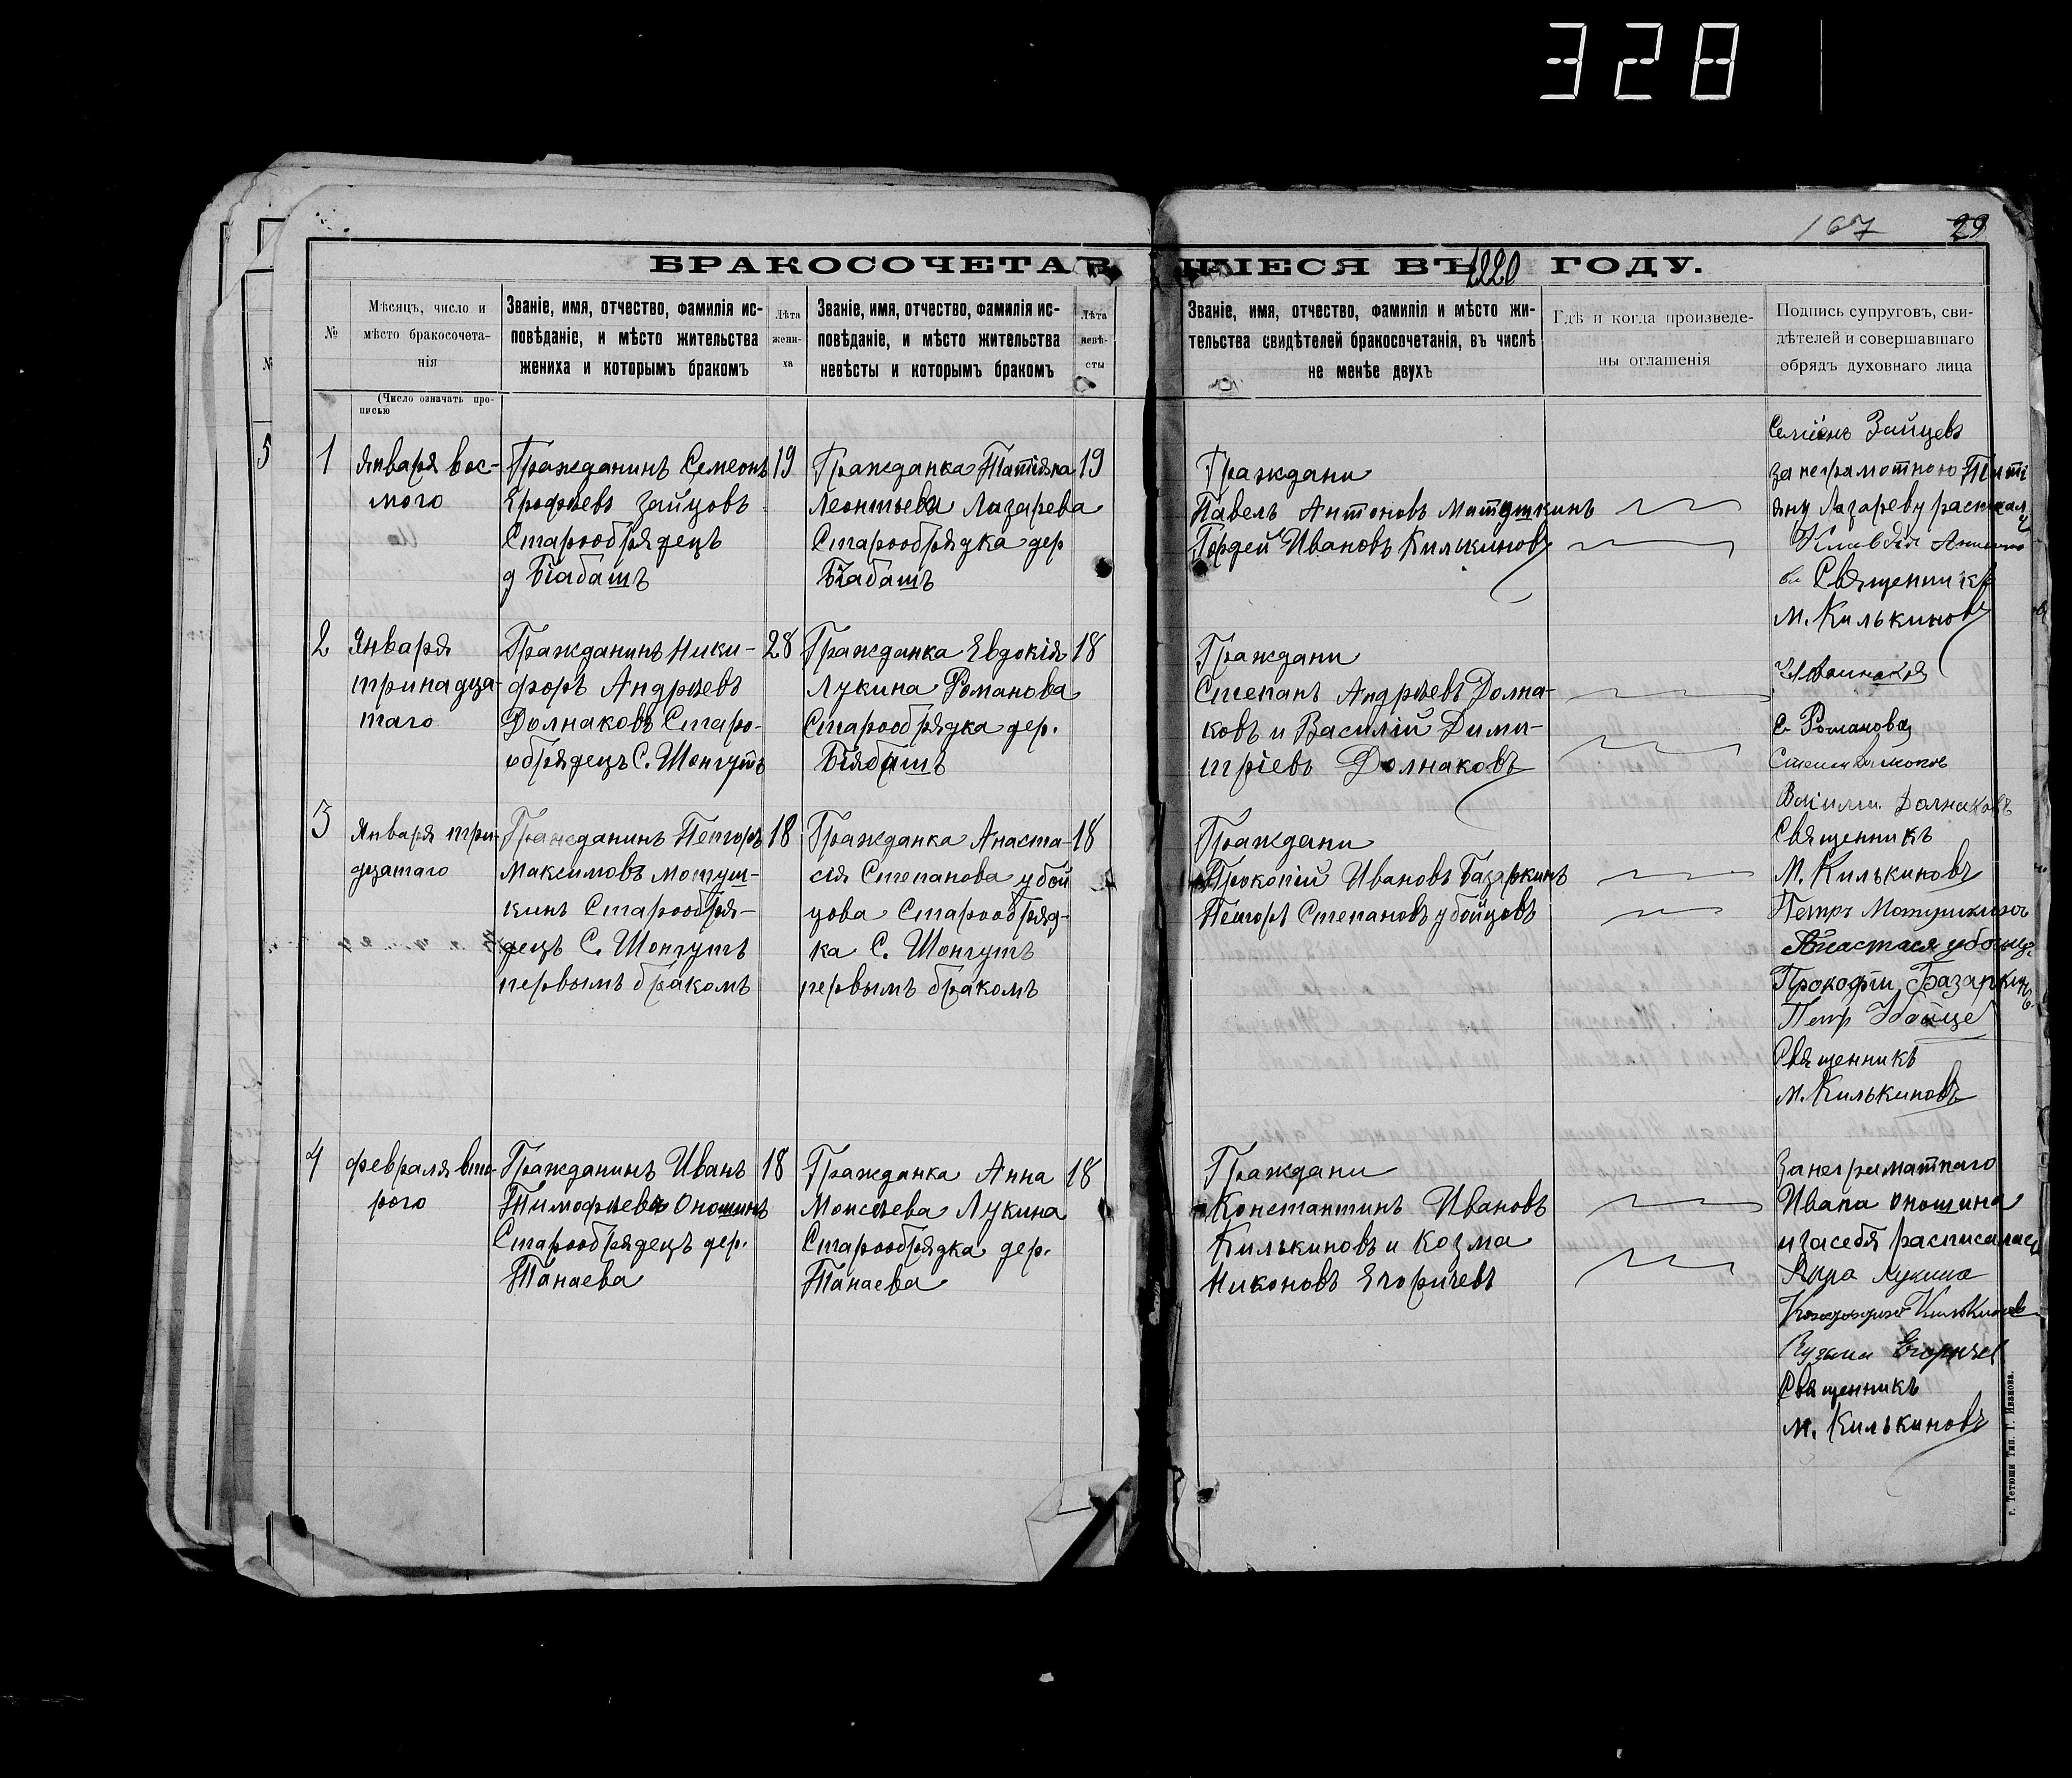 328
167 29
БРАКОСОЧЕТАВШІЕСЯ ВЪ 1920 ГОДУ.
№
Мѣсяцъ, число и
мѣсто бракосочета-
нія
(Число означать про-
писью
Званіе, имя, отчество, фамилія ис-
повѣданіе, и мѣсто жительства
жениха и которымъ бракомъ
Лѣта
жени-
ха
Званіе, имя, отчество, фамилія ис-
повѣданіе, и мѣсто жительства
невѣсты и которымъ бракомъ
Лѣта
невѣ-
сты
Званіе, имя, отчество, фамилія и мѣсто жи-
тельства свидѣтелей бракосочетанія, въ числѣ
не менѣе двухъ
Гдѣ и когда произведе-
ны оглашенія
Подпись супруговъ, сви-
дѣтелей и совершавшаго
обрядъ духовнаго лица
№
5
1
Января вос-
мого
Гражданинъ Семеонъ
Ерофѣевъ Зайцовъ
Старообрядецъ
д Біабашъ
19
Гражданка Татіяна
Леонтьева Лазарева
Старообрядка дер
Біабашъ
19
Граждани
Павелъ Антоновъ Матушкинъ
Гордей Ивановъ Килькиновъ
Семіонъ Зайцевъ
за неграмотною Тати
яну Лазареву
Священникъ
М. Килькиновъ
2
Января
тринадца-
таго
Гражданинъ Ники-
форъ Андрѣевъ
Долнаковъ Старо-
обрядецъ С. Шонгутъ
28
Гражданка Евдокія
Лукина Романова
Старообрядка дер.
Біябашъ
18
Граждани
Степанъ Андрѣевъ Долна-
ковъ и Василій Дими-
тріевъ Долнаковъ
Е. Романова
Василий Долнаковъ
Священникъ
М. Килькиновъ
3
Января три-
дцатаго
Гражданинъ Петоръ
Максимовъ Мотуш-
кинъ Старообря-
децъ С. Шонгутъ
первымъ бракомъ
18
Гражданка Анаста-
сія Степанова убой
цова Старообряд-
ка С. Шонгутъ
первымъ бракомъ
18
Граждани
Прокопій Ивановъ Базаркинъ
Петоръ Степановъ убойцовъ
Петръ Мотушкинъ
Анастасея
Прокофти Базаркинъ
Петр Убойце
Священникъ
М. Килькиновъ
4
февраля вто-
рого
Гражданинъ Иванъ
Тимофѣевъ Оношинъ
Старообрядецъ дер.
Танаева
18
Гражданка Анна
Моисѣева Лукина
Старообрядка дер.
Танаева
18
Граждани
Константинъ Ивановъ
Килькиновъ и Козма
Никоновъ Егоричевъ
За неграматнаго
Ивана оношина
и засебя расписалась
Анна Лукина
Кузьма Егоричев
Священникъ
М. Килькиновъ
г. Тетюши Тип. Г. Иванова.